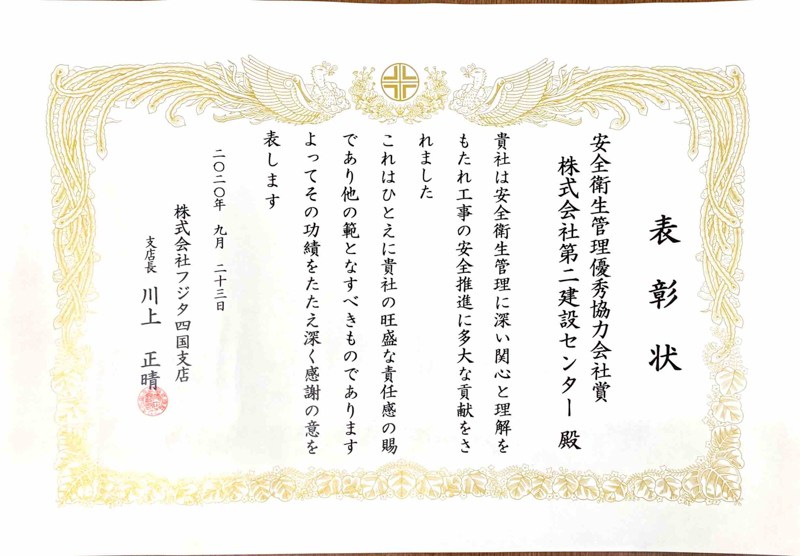 表彰状
安全衛生管理優秀協力会社賞
株式会社第二建設センター 殿
貴社は安全衛生管理に深い関心と理解を
もたれ工事の安全推進に多大な貢献をさ
れました
これはひとえに貴社の旺盛な責任感の賜
であり他の範となすべきものであります
よってその功績をたたえ深く感謝の意を
表します
二〇二〇年 九月 二十三日
株式会社フジタ四国支店
支店長 川上 正晴